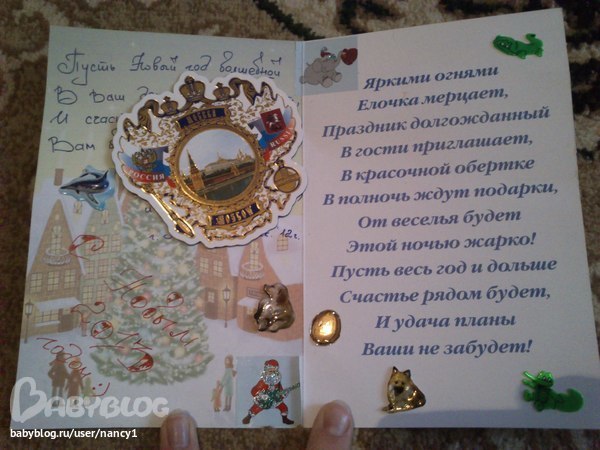 Пусть Новый год волшебной
В Ваш
И счас
Вам
МОСКВА
РОССИЯ
RUSSIA
МОСКВА
12г.
С Новым
2013
годом :)
Яркими огнями
Елочка мерцает,
Праздник долгожданный
В гости приглашает,
В красочной обертке
В полночь ждут подарки,
От веселья будет
Этой ночью жарко!
Пусть весь год и дольше
Счастье рядом будет,
И удача планы
Ваши не забудет!
BABYBLOG
babyblog.ru/user/nancy1